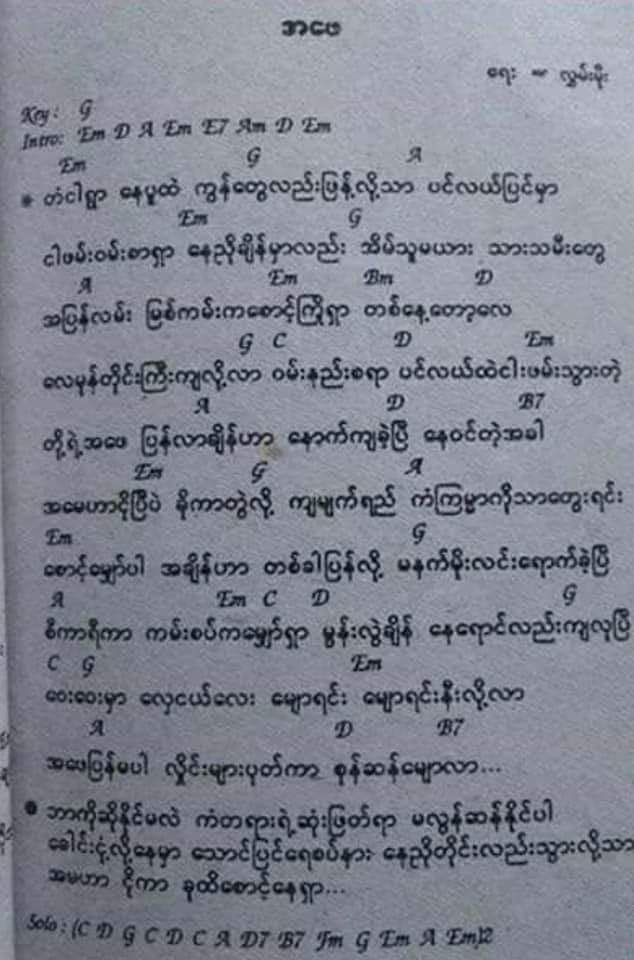 အဖေ
ရေး - လွှမ်းမိုး
Key : G
Intro: Em D A Em E7 Am D Em
Em G A
* တံငါရွာ နေပူထဲ ကွန်တွေလည်းဖြန့်လို့သာ ပင်လယ်ပြင်မှာ
Em G
ငါဖမ်းဝမ်းစာရှာ နေညိုချိန်မှာလည်း အိမ်သူမယား သားသမီးတွေ
A Em Bm D
အပြန်လမ်း မြစ်ကမ်းကစောင့်ကြိုရှာ တစ်နေ့တော့လေ
G C D Em
လေမုန်တိုင်းကြီးကျလို့လာ ဝမ်းနည်းစရာ ပင်လယ်ထဲငါးဖမ်းသွားတဲ့
A D B7
တို့ရဲ့အဖေ ပြန်လာချိန်ဟာ နောက်ကျခဲ့ပြီ နေဝင်တဲ့အခါ
Em G A
အမေဟာငိုပြီပဲ ခိုကာတွဲလို့ ကျမျက်ရည် ကံကြမ္မာကိုသာတွေးရင်း
Em G
စောင့်မျှော်ပါ အချိန်ဟာ တစ်ခါပြန်လို့ မနက်မိုးလင်းရောက်ခဲ့ပြီ
A Em C D G
စီကာရီကာ ကမ်းစပ်ကမျှော်ရှာ မွန်းလွဲချိန် နေရောင်လည်းကျလုပြီ
C G Em
ဝေးဝေးမှာ လှေငယ်လေး မျောရင်း မျောရင်းနီးလို့လာ
A D B7
အဖေပြန်မပါ လှိုင်းများပုတ်ကာ စုန်ဆန်မျောလာ...
● ဘာကိုဆိုနိုင်မလဲ ကံတရားရဲ့ဆုံးဖြတ်ရာ မလွန်ဆန်နိုင်ပါ
ခေါင်းငုံ့လို့နေမှာ သောင်ပြင်ရေစပ်နား နေညိုတိုင်းလည်းသွားလို့သာ
အမေဟာ ငိုကာ ခုထိစောင့်နေရှာ...
Solo : (C D G C D C A D7 B7 Fm G Em A Em)2